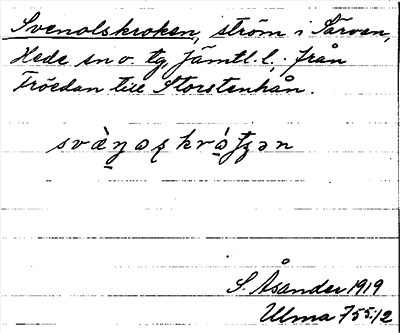 Svenolskroken, ström i Särven,
Hede sn o. tg Jämtl. l., från
Fröedan till Storstenhån.
S. Åsander 1919
Ulma 755:12